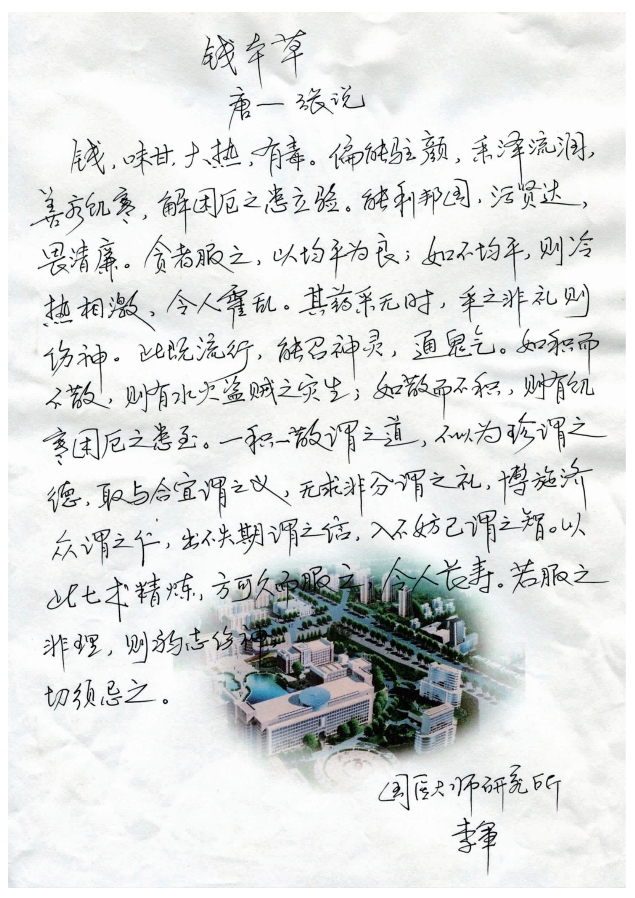 钱本草
唐一张说
钱，味甘，大热，有毒。偏能驻颜，采泽流润，
善疗饥寒，解困厄之患立验。能利邦国，污贤达，
畏清廉。贪者服之，以均平为良；如不均平，则冷
热相激，令人霍乱。其药采无时，采之非礼则
伤神。此既流行，能召神灵，通鬼气。如积而
不散，则有水火盗贼之灾生；如散而不积，则有饥
寒困厄之患至。一积一散谓之道，不以为珍谓之
德，取与合宜谓之义，无求非分谓之礼，博施济
众谓之仁，出不失期谓之信，入不妨己谓之智。以
此七术精炼，方可久而服之，令人长寿。若服之
非理，则弱志伤神
切须忌之。
国医大师研究所
李军